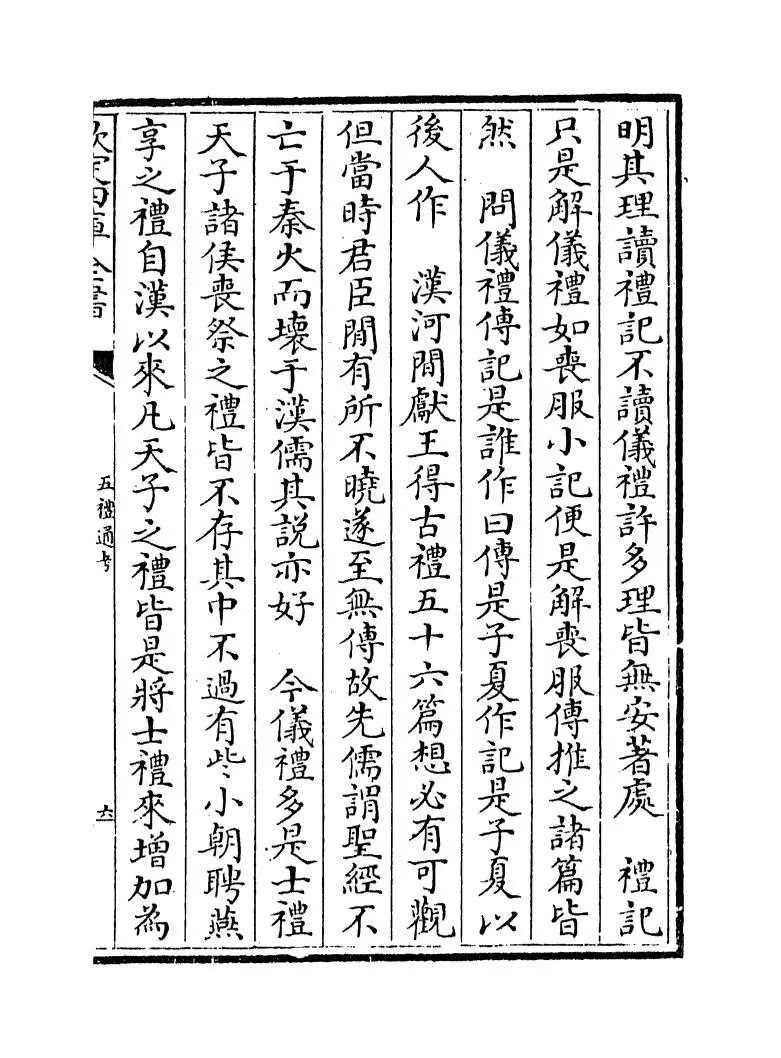 明其理讀禮記不讀儀禮許多理皆無安著處　禮記
只是解儀禮如喪服小記便是解喪服傳推之諸篇皆
然　問儀禮傳記是誰作曰傳是子夏作記是子夏以
後人作　漢河間獻王得古禮五十六篇想必有可觀
但當時君臣閒有所不曉遂至無傳故先儒謂聖經不
亡于秦火而壞于漢儒其説亦好　今儀禮多是士禮
天子諸侯喪祭之禮皆不存其中不過有些小朝聘燕
享之禮自漢以來凡天子之禮皆是將士禮來增加為
欽定四庫全書
五禮通考
六